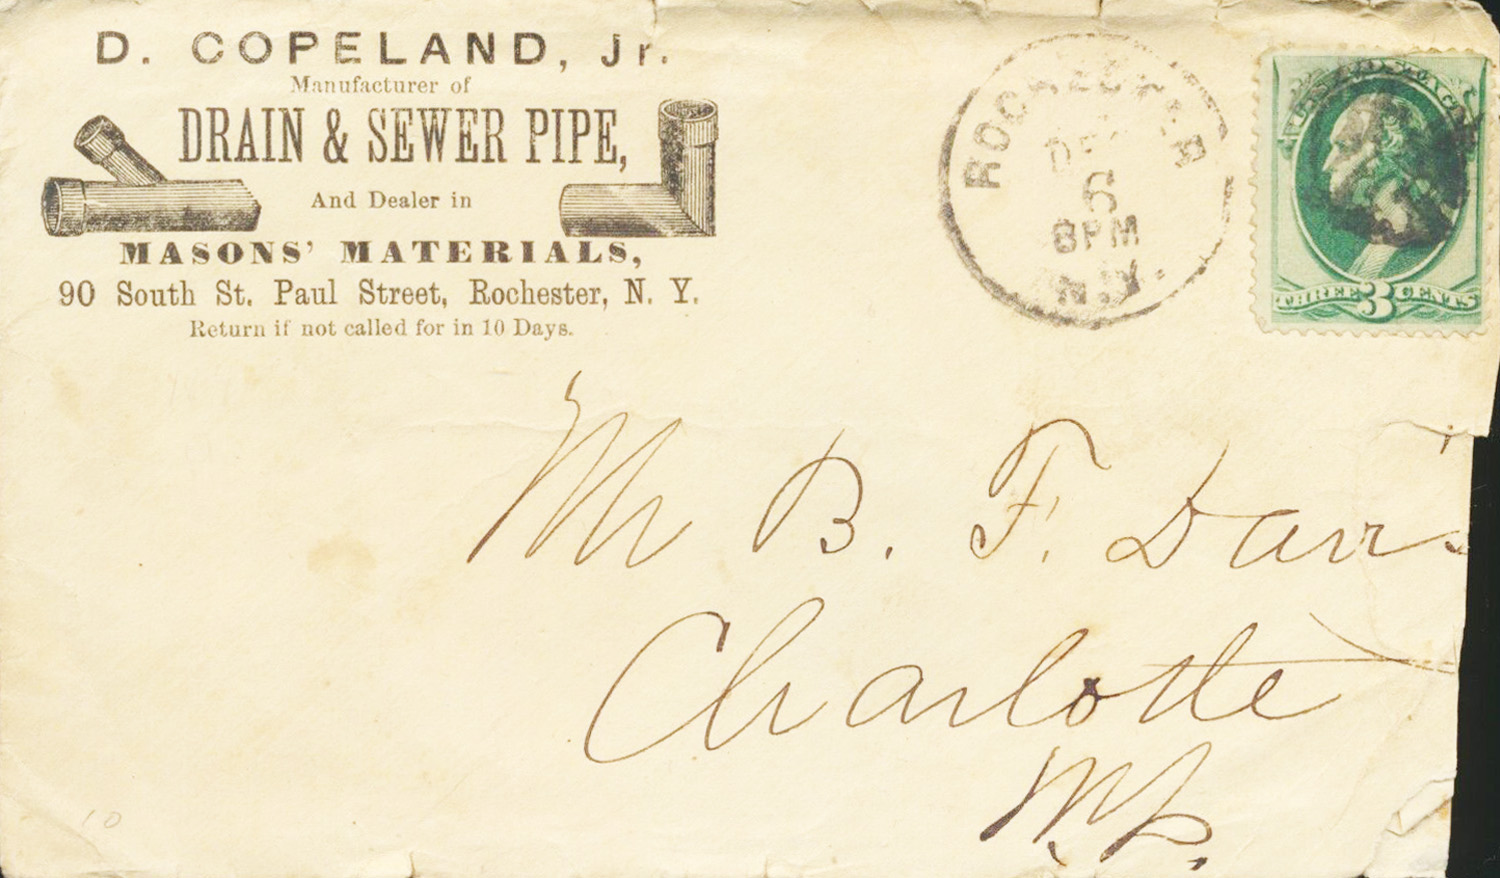 D. COPELAND, Jr.
Manufacturer of
DRAIN & SEWER PIPE,
And Dealer in
MASONS' MATERIALS,
90 South St. Paul Street, Rochester, N. Y.
Return if not called for in 10 Days.
ROCHESTER
DEC
6
8PM
N.Y.
THREE 3 CENTS
Mr B. F. Davis
Charlotte
10